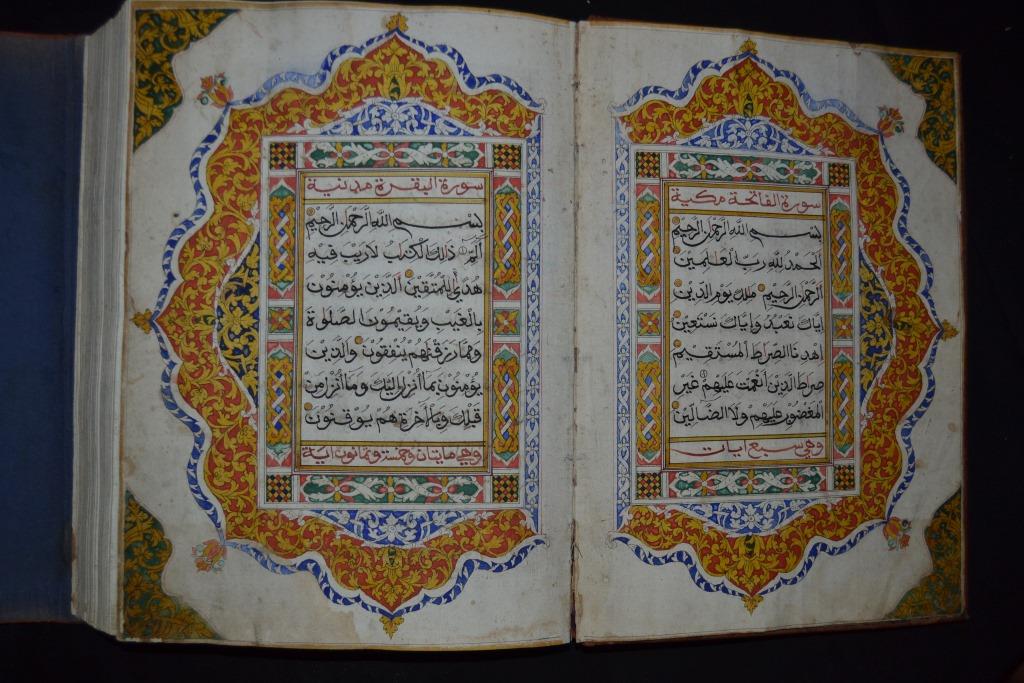 سورة الفاتحة مكية
بسم الله الرحمن الرحيم
الحمد لله رب العلمين
الرحمن الرحيم ملك يوم الدين
اياك نعبد واياك نستعين
اهدنا الصراط المستقيم
صراط الذين انعمت عليهم غير
المغضوب عليهم ولا الضالين
وهي سبع ايات
سورة البقرة مدنية
بسم الله الرحمن الرحيم
الم ذلك الكتب لا ريب فيه
هدى للمتقين الذين يؤمنون
بالغيب ويقيمون الصلوة
ومما رزقنهم ينفقون والذين
يؤمنون بما انزل اليك وما انزل من
قبلك وبالاخرة هم يوقنون
وهي مايتان وخمسة وثمانون اية